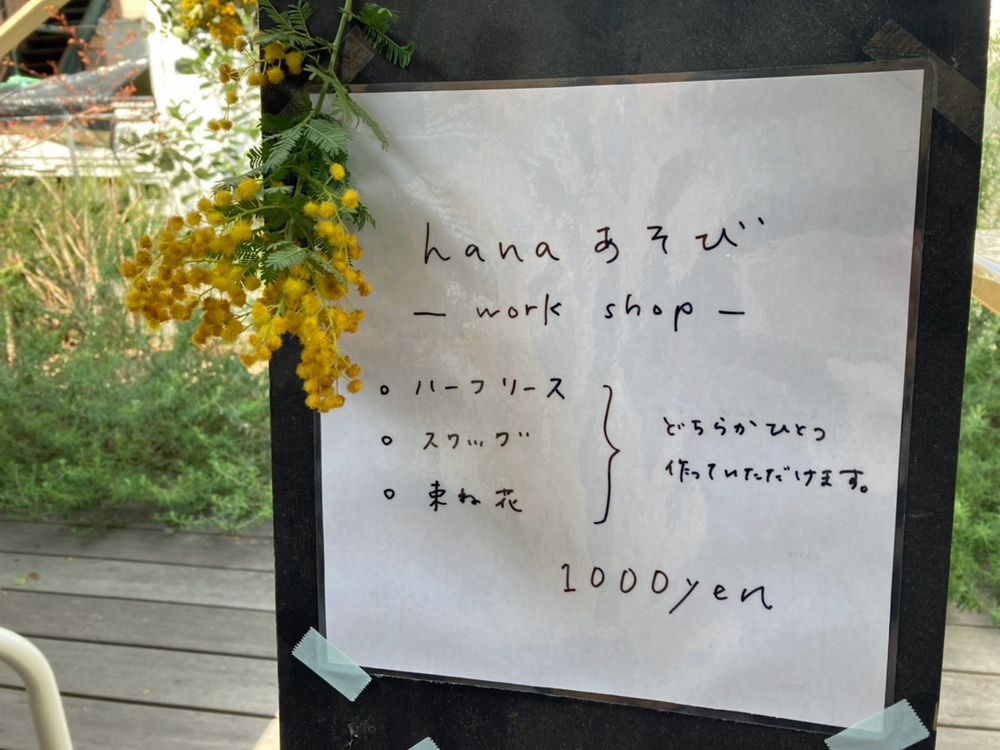 hana あそび
— work shop —
○ ハーフリース
○ スワッグ
○ 束ね花
どちらかひとつ
作っていただけます。
1000yen